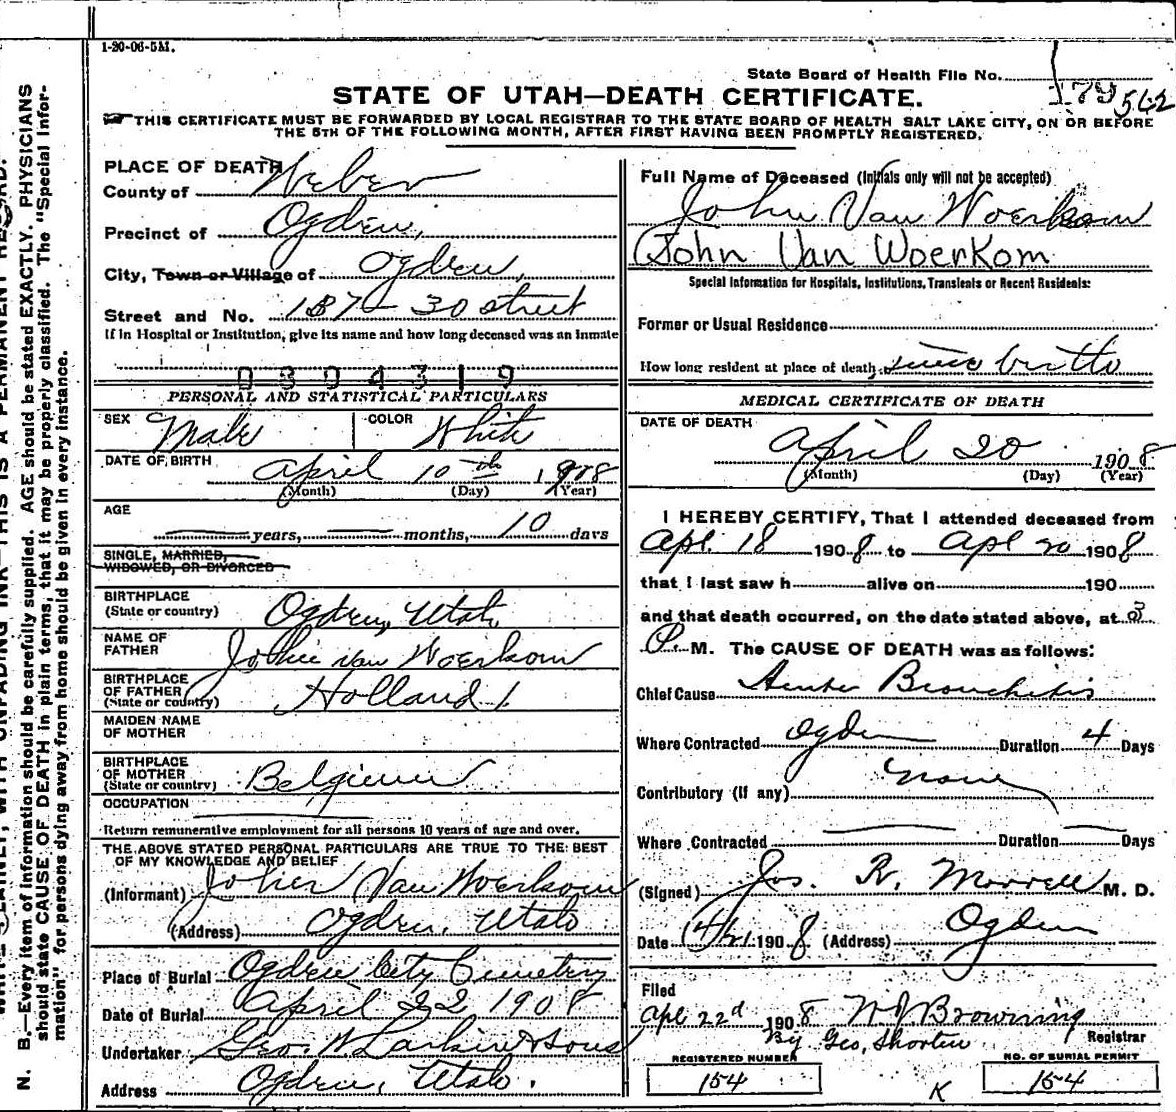 1-20-06-5M.
State Board of Health File No.
179 562
STATE OF UTAH—DEATH CERTIFICATE.
THIS CERTIFICATE MUST BE FORWARDED BY LOCAL REGISTRAR TO THE STATE BOARD OF HEALTH SALT LAKE CITY, ON OR BEFORE
THE 5TH OF THE FOLLOWING MONTH, AFTER FIRST HAVING BEEN PROMPTLY REGISTERED.
PLACE OF DEATH
County of Weber
Precinct of Ogden,
City, Town or Village of Ogden,
Street and No. 187 - 30 street
If in Hospital or Institution, give its name and how long deceased was an Inmate
0304319
PERSONAL AND STATISTICAL PARTICULARS
SEX Male COLOR White
DATE OF BIRTH April 10th 1908
(Month) (Day) (Year)
AGE
years, months, 10 days
SINGLE, MARRIED,
WIDOWED, OR DIVORCED
BIRTHPLACE
(State or country) Ogden, Utah
NAME OF
FATHER Van Woerkom
BIRTHPLACE
OF FATHER
(State or country) Holland
MAIDEN NAME
OF MOTHER
BIRTHPLACE
OF MOTHER
(State or country) Belgium
OCCUPATION
Return remunerative employment for all persons 10 years of age and over.
THE ABOVE STATED PERSONAL PARTICULARS ARE TRUE TO THE BEST
OF MY KNOWLEDGE AND BELIEF
(Informant) Van Woerkom
(Address) Ogden, Utah
Place of Burial Ogden City Cemetery
Date of Burial April 22 1908
Undertaker Geo. W. Larkin & Sons
Address Ogden, Utah.
Full Name of Deceased (Initials only will not be accepted)
John Van Woerkom
John Van Woerkom
Special Information for Hospitals, Institutions, Transients or Recent Residents:
Former or Usual Residence
How long resident at place of death since birth
MEDICAL CERTIFICATE OF DEATH
DATE OF DEATH
April 20 1908
(Month) (Day) (Year)
I HEREBY CERTIFY, That I attended deceased from
Apl. 18 1908 to Apl 20 1908
that I last saw h alive on 190
and that death occurred, on the date stated above, at 3
P. M. The CAUSE OF DEATH was as follows:
Chief Cause Acute Bronchitis
Where Contracted Ogden Duration 4 Days
Contributory (if any) None
Where Contracted Duration Days
(Signed) Jos. R. Morrell M. D.
Date 4/21 1908 (Address) Ogden
Filed
Apl 22d 1908 W J Browning
By Geo, Shorten Registrar
REGISTERED NUMBER
154
K
NO. OF BURIAL PERMIT
154
N. B.—Every item of information should be carefully supplied. AGE should be stated EXACTLY. PHYSICIANS
should state CAUSE OF DEATH in plain terms, that it may be properly classified. The "Special Infor-
mation" for persons dying away from home should be given in every instance.